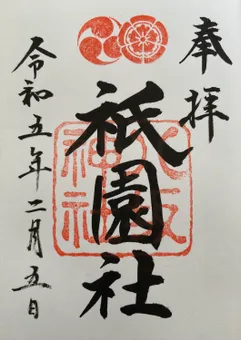 奉拝
祇園社
八坂神社
令和五年二月五日